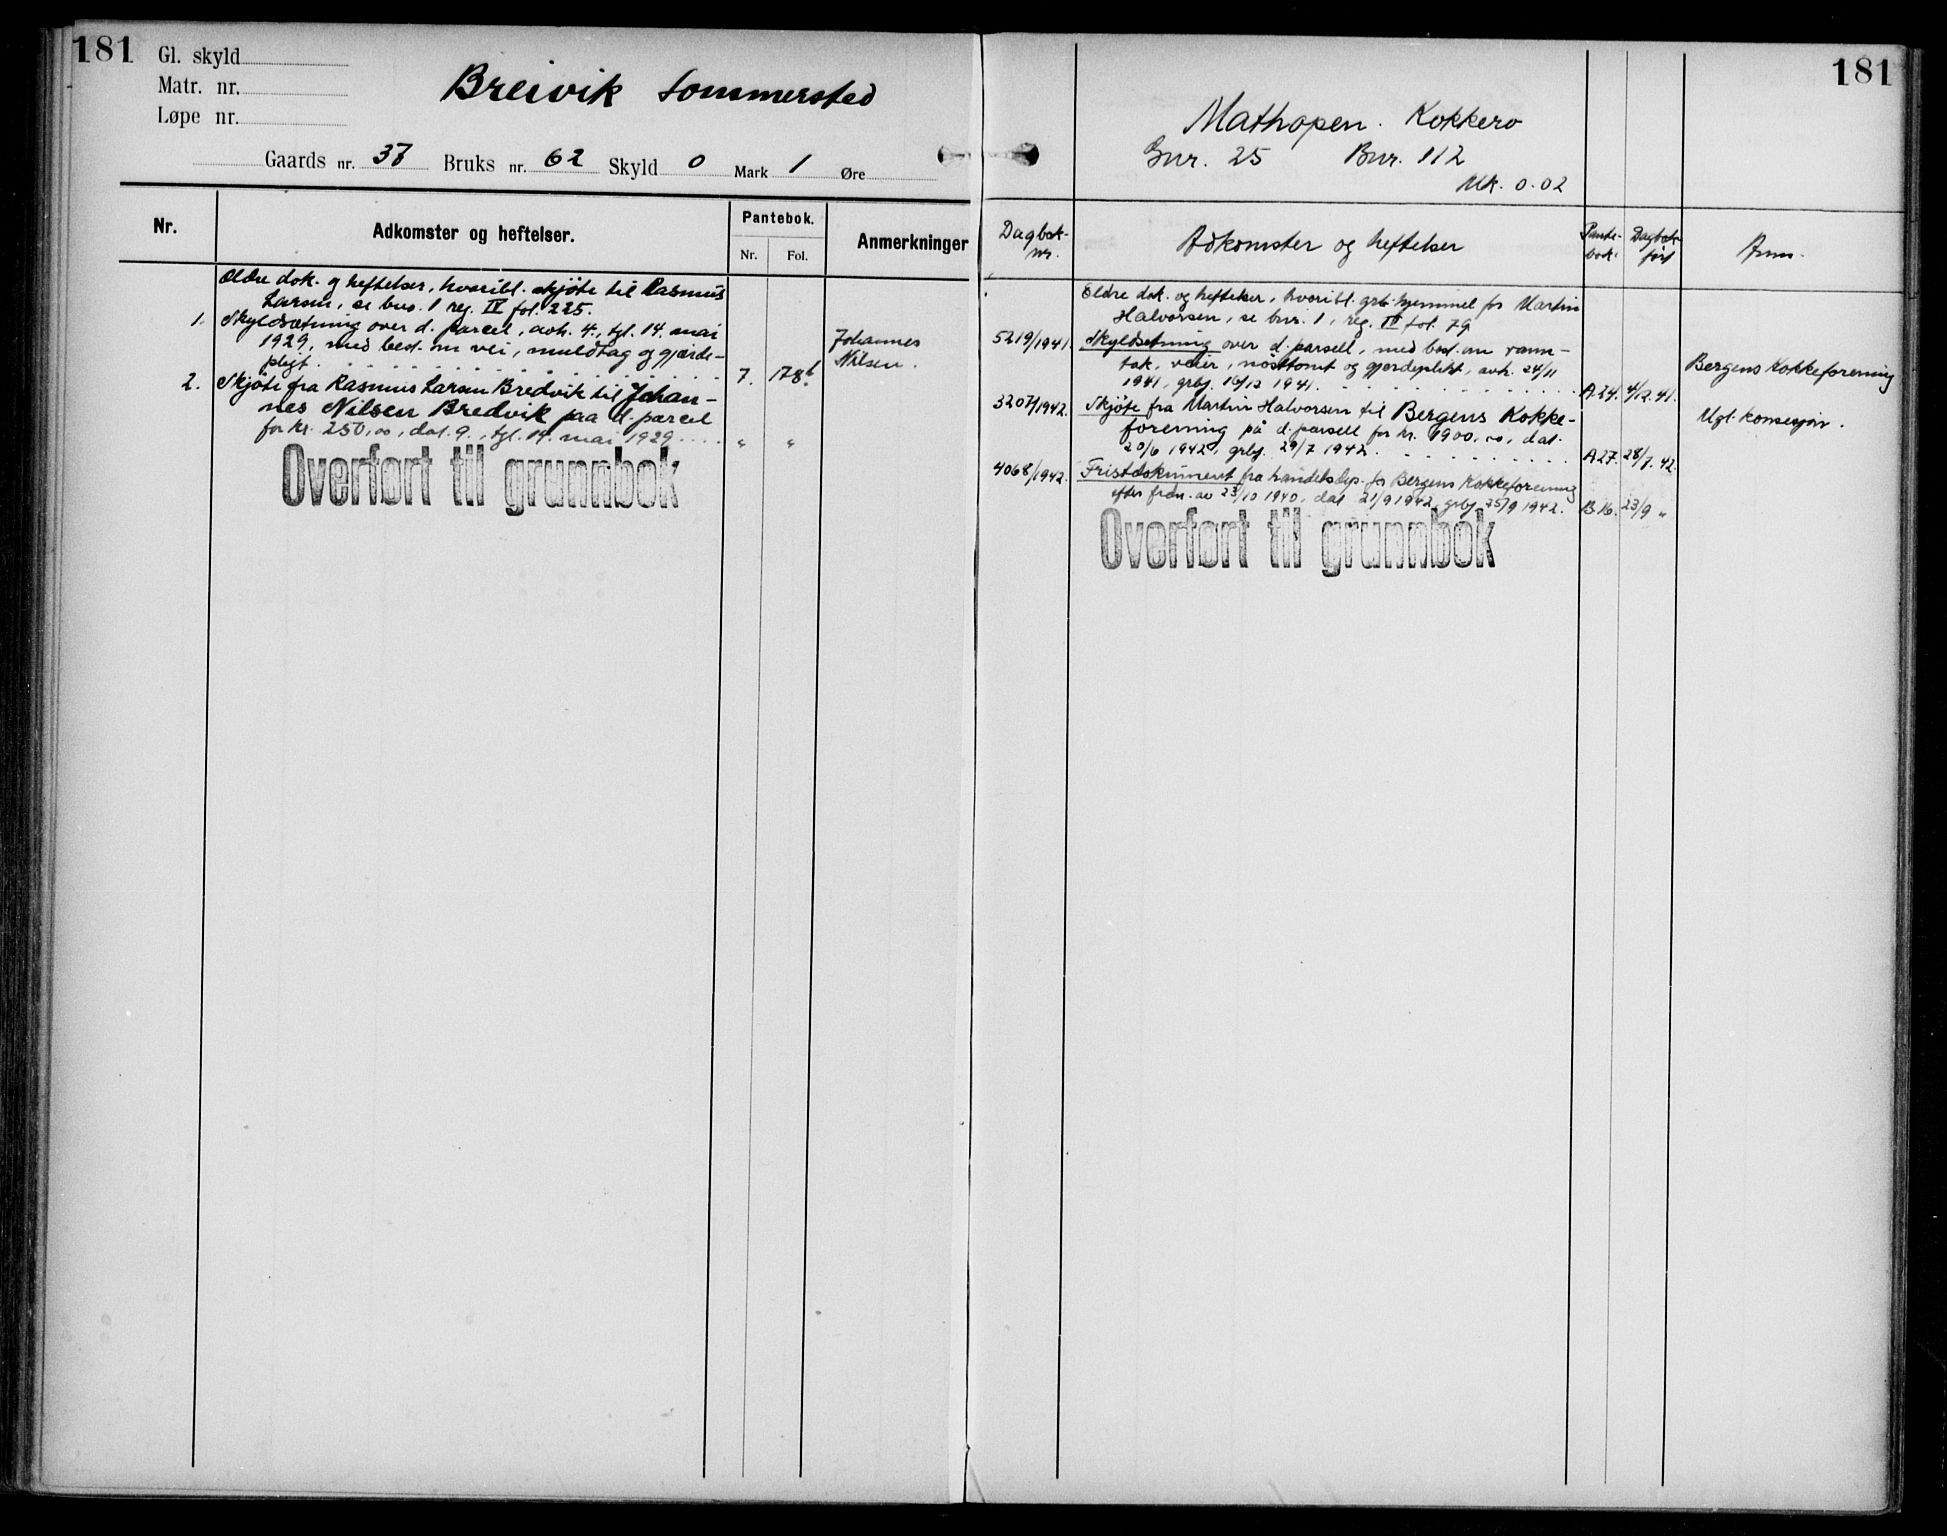 181
Gl. skyld
Matr. nr.
Løpe nr.
Breivik Sommersted
Gaards nr. 37 Bruks nr. 62 Skyld 0 Mark 1 Øre
Nr.
Adkomster og heftelser.
Pantebok.
Nr. Fol.
Anmerkninger
Eldre dok. og heftelser, hvoribl. skjöte til Rasmus
Larsen, se bno. 1 reg. IV fol. 225.
1. Skyldsætning over d. parcel, avh. 4., tgl. 14. mai
1929, med best. om vei, muldtag og gjærde-
pligt. 7. 178b
Johannes
Nilsen.
2. Skjöte fra Rasmus Larsen Bredvik til Johan-
nes Nilsen Bredvik paa d. parcel
for kr. 250,00, dat. 9., tgl. 14. mai 1929 " "
Overført til grunnbok
181
Mathopen. Kokkero
Gnr. 25 Bnr. 112
Mk. 0.02
Dagbok-
nr.
Adkomster og heftelser
Pante-
bok.
Dagbok-
ført
Anm.
Eldre dok. og heftelser, hvoribl. grb. hjemmel for Martin
Halvorsen, se bnr. 1, reg. IV fol. 79
5219/1941. Skyldsetning over d. parsell, med best. om vann-
tak, veier, nösttomt og gjerdeplikt, avh. 24/11
1941, grbj. 10/12 1941. A 24. 4/12. 41.
Bergens Kokkeforening
3207/1942. Skjöte fra Martin Halvorsen til Bergens Kokke-
forening på d. parsell for kr. 1900,00, dat.
20/6 1942, grbj. 29/7 1942. A 27. 28/7. 42.
Mgl. konsesjon.
4068/1942. Fristdokument fra handelsdep. for Bergens Kokkeforening
efter fran. av 23/10 1940, dat 21/9 1942, grbj. 25/9 1942. B 16. 23/9 "
Overført til grunnbok